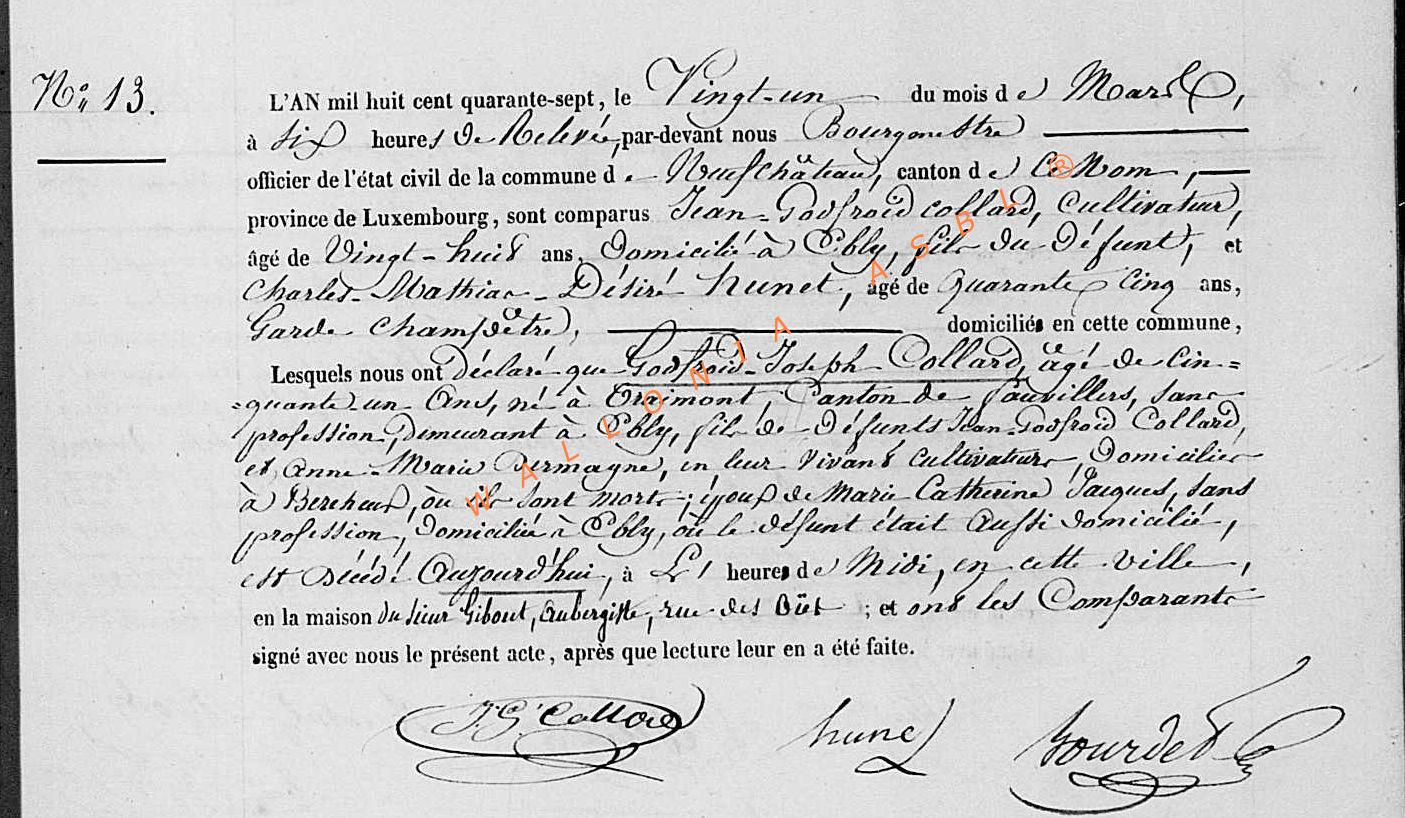 N° 13.
L'AN mil huit cent quarante-sept, le Vingt-un du mois de Mars,
à six heures de Relevée, par-devant nous Bourgmestre
officier de l'état civil de la commune de Neufchâteau, canton de Ce Nom,
province de Luxembourg, sont comparus Jean-Godfroid Collard, Cultivateur,
âgé de Vingt-huit ans, Domicilié à Ebly, fils du Défunt, et
Charles-Mathias-Désiré hunet, âgé de Quarante Cinq ans,
Garde Champêtre, domiciliés en cette commune,
Lesquels nous ont Déclaré que Godfroid-Joseph Collard, âgé de Cin=
=quante-un Ans, né à Traimont Canton de fauvillers, sans
profession, Demeurant à Ebly, fils de Défunts Jean-Godfroid Collard,
et Anne-Marie, en leur Vivant Cultivateurs, Domiciliés
à Bercheux, où ils sont morts; époux de Marie Catherine Jacques, sans
profession, Domiciliée à Ebly, où le défunt était Aussi domicilié,
est Décédé Aujourd'hui, à L' heure de Midi, en cette ville,
en la maison du sieur Gibout, Aubergiste, rue des ; et ont les Comparants
signé avec nous le présent acte, après que lecture leur en a été faite.
J. G. Collard hunet Bourdet
WALLONIA ASBL ®